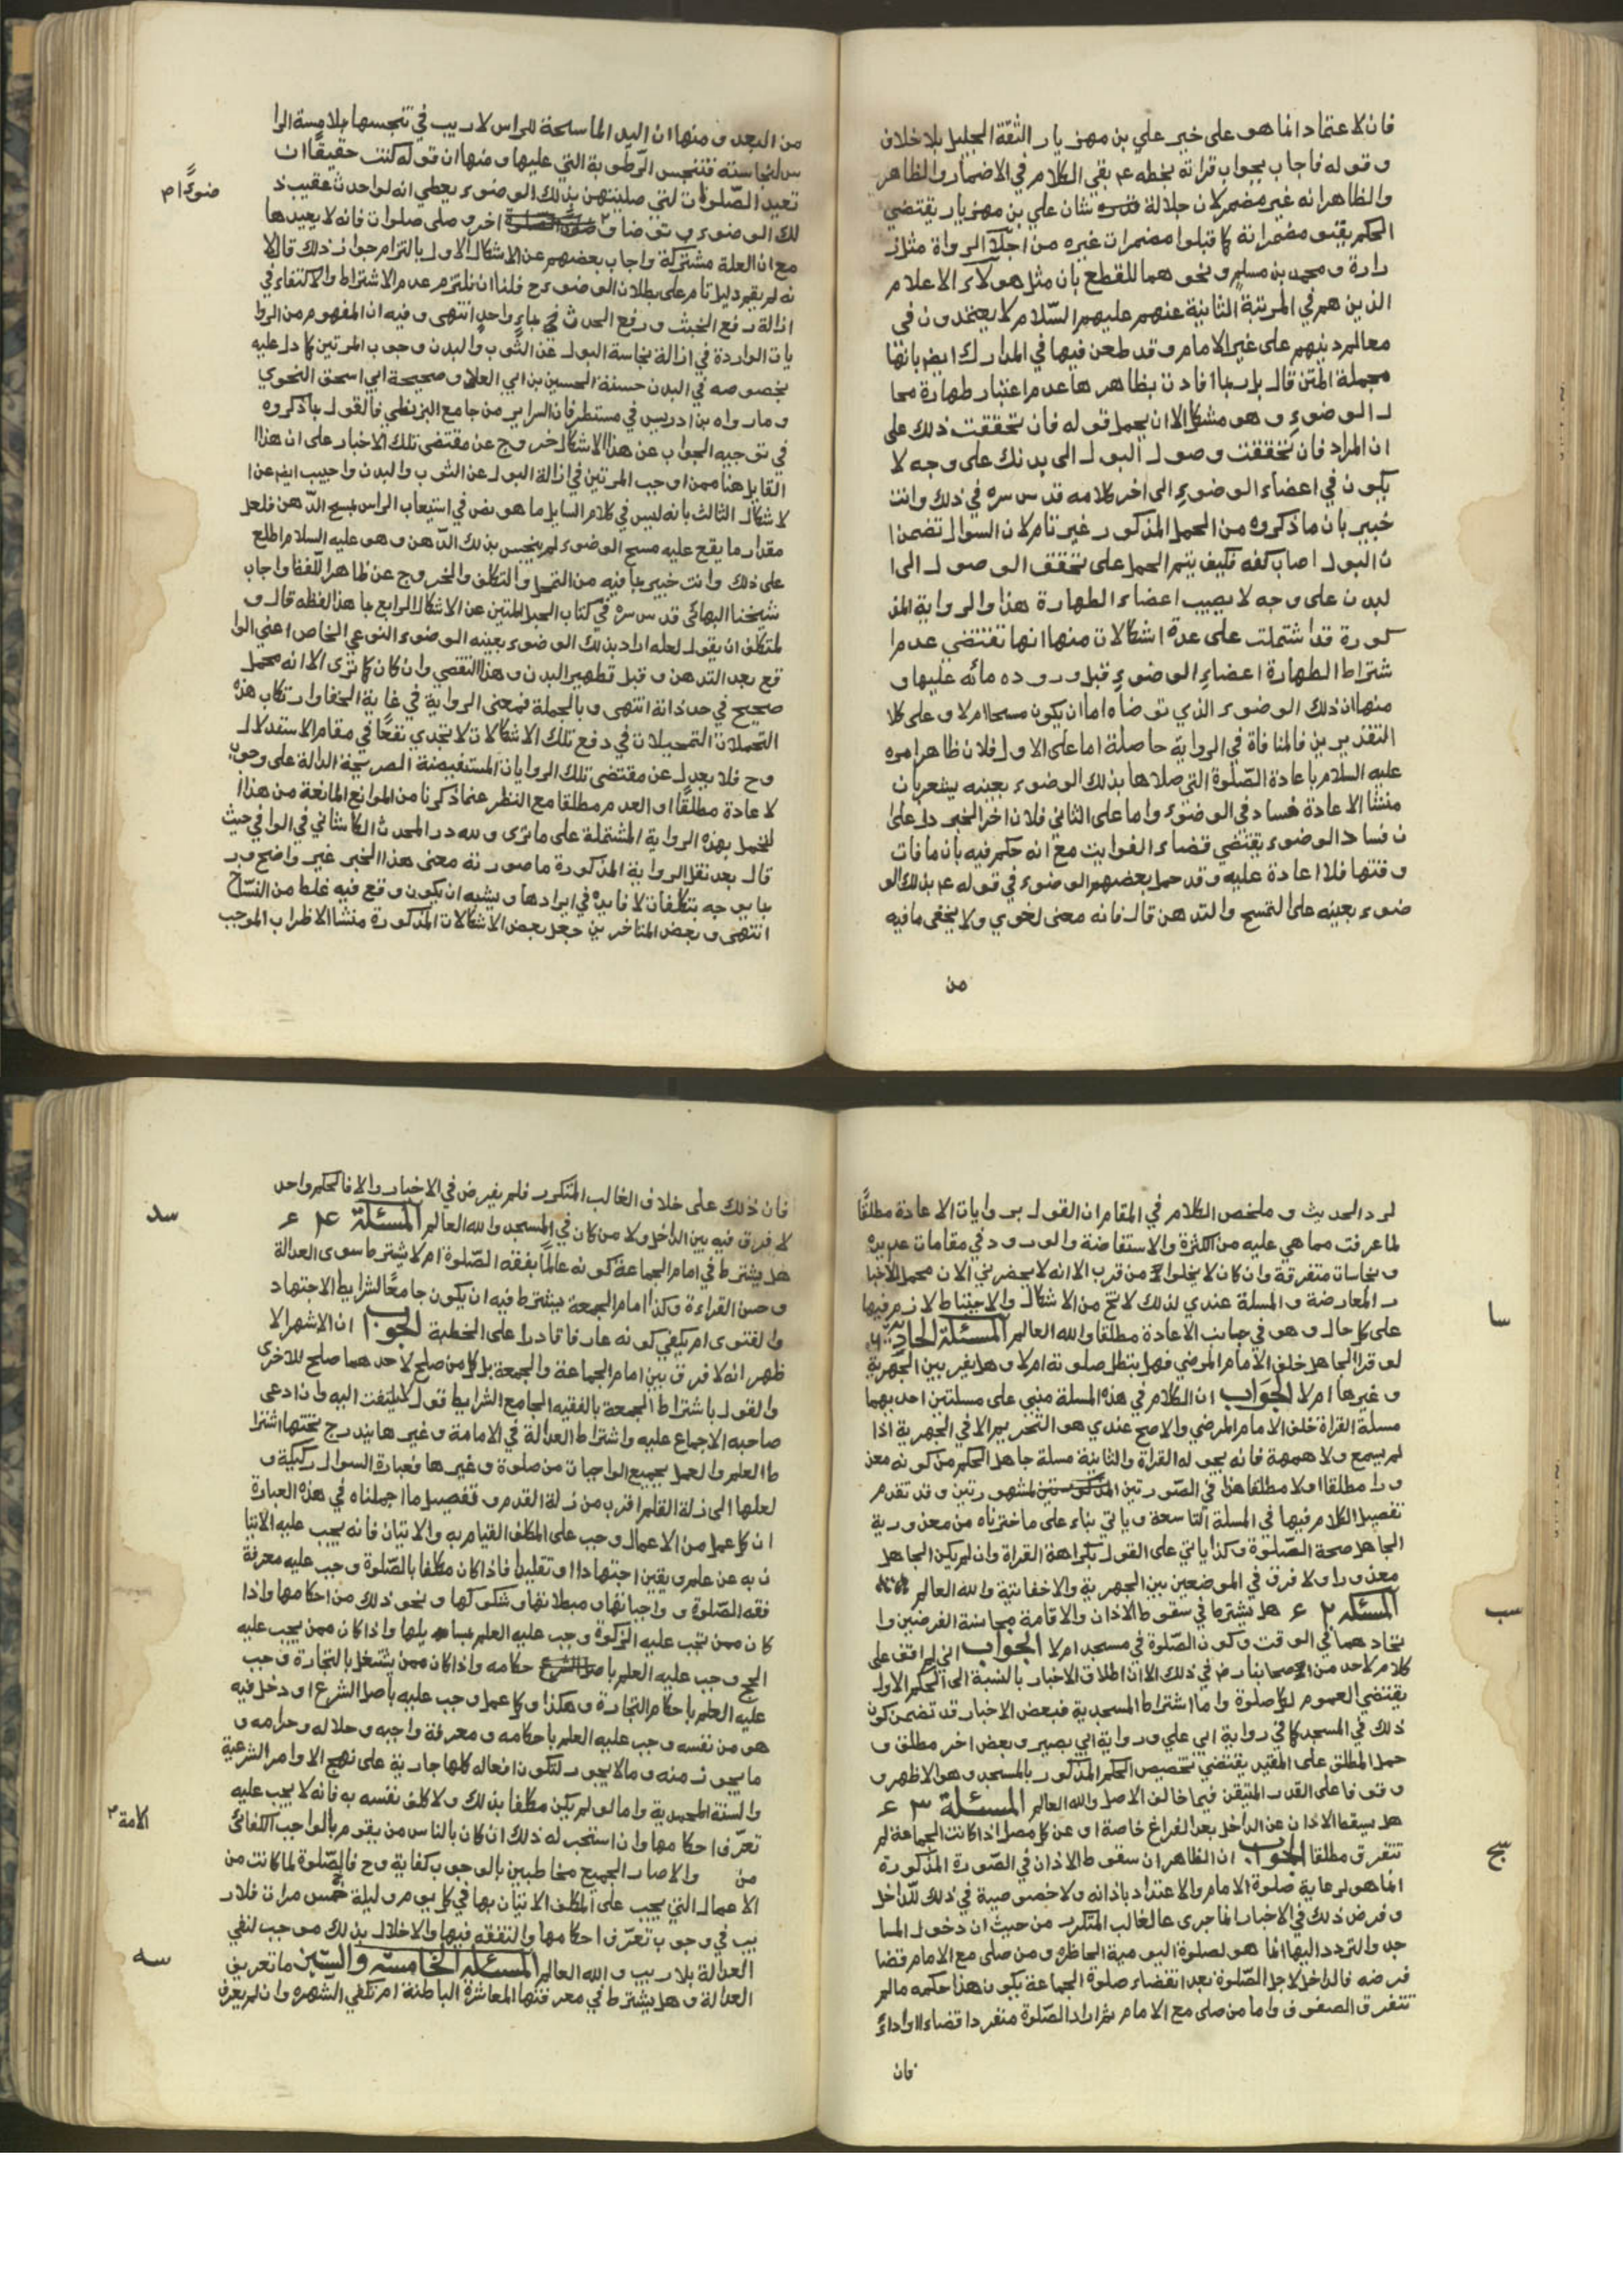 فان الاعتماد انما هو على خبر علي بن مهزيار الثقة الجليل بلا خلاف
و قوله فاجاب بجواب قراته بخطه ع م بقي الكلام في الاضمار والظاهر
والظاهر انه غير مضمر لان جلالة شان علي بن مهزيار يقتضي
الحكم بقبو مضمراته كما قبلوا مضمرات غيره من اجلآ الرواة مثل ز
رارة و محمد بن مسلم و نحوهما للقطع بان مثل هولآء الاعلام
الذين هم في المرتبة الثانية عنهم عليهم السّلام لا يعتمدون في
معالم دينهم على غير الامام و قد طعن فيها في المدارك ايض بانها
مجملة المتن قال بل ربما افادت بظاهرها عدم اعتبار طهارة محا
ل الوضوء و هو مشكل الا ان يحمل قوله فان تحققت ذلك على
ان المراد فان تحققت وصول البول الى بدنك على وجه لا
يكون في اعضاء الوضوء الى اخر كلامه قدس سره في ذلك وانت
خبير بان ما ذكروه من المحمل المذكور غير تام لان السوال تضمن ا
ن البول اصاب كفه فكيف يتم الحمل على تحقق الوصول الى ا
لبدن على وجه لا يصيب اعضاء الطهارة هذا والرواية المذ
كورة قد اشتملت على عدة اشكالات منها انها تقتضي عدم ا
شتراط الطهارة اعضاءِ الوضوءِ قبل ورود مائه عليها و
منها ان ذلك الوضوء الذي توضاه اما ان يكون مسحا ام لا و على كلا
التقديرين فالمنافاة في الرواية حاصلة اما على الاول فلان ظاهر امره
عليه السلام باعادة الصّلوة التي صلاها بذلك الوضوء بعينه يشعر بان
منشا الاعادة فساد في الوضوء واما على الثاني فلان اخر الخبر دل على ا
ن فساد الوضوء يقتضي قضاء الفوايت مع انه حكم فيه بان ما فات
وقتها فلا اعادة عليه و قد حمل بعضهم الوضوء في قوله ع م بذلك الو
ضوء بعينه على التمسح والتدهن قال فانه معنى لغوي ولا يخفى ما فيه
من
من البعد و منها ان اليد الماسحة للراس لا ريب في تنجسها بملامسة الرا
س لنجاسته فتنجس الرّطوبة التي عليها و منها ان قوله كنت حقيقًا ان
تعيد الصّلوات لتي صليتهن بذلك الوضوء يعطي انه لو احدث عقيب ذ
ضوءًا م
لك الوضوء و توضا و اخر و صلى صلوات فانه لا يعيدها
مع ان العلة مشتركة واجاب بعضهم عن الاشكال الاول بالتزام جواز ذلك قال لا
نه لم يقم دليل تام على بطلان الوضوء ح فلنا ان نلتزم عدم الاشتراط والاكتفاء في
ازالة رفع الخبث و رفع الحدث بماءٍ واحدٍ انتهى و فيه ان المفهوم من الروا
يات الواردة في ازالة نجاسة البول عن الثوب والبدن وجوب المرتين كما دل عليه
بخصوصه في البدن حسنة الحسين بن ابي العلا و صحيحة ابي اسحق النحوي
و ما رواه بن ادريس في مستطرفات السراير من جامع البزنطي فالقول بما ذكروه
في توجيه الجواب عن هذا الاشكال خروج عن مقتضى تلك الاخبار على ان هذا ا
القايل هنا ممن اوجب المرتين في ازالة البول عن الثوب والبدن و اجيب ايض عن ا
لاشكال الثالث بانه ليس في كلام السايل ما هو نص في استيعاب الراس بمسح الدّهن فلعل
مقدار ما يقع عليه مسح الوضوء لم ينجس بذلك الدّهن و هو عليه السلام اطلع
على ذلك وانت خبير بما فيه من التمحل والتكلف والخروج عن ظاهر اللّفظ واجاب
شيخنا البهائي قدس سره في كتاب الحبل المتين عن الاشكال الرابع بما هذا لفظه قال و
لمتكلف ان يقول لعله اراد بذلك الوضوء بعينه الوضوء النوعي الخاص اعني الوا
قع بعد التدهن و قبل تطهير البدن و هذا التقضي وان كان كما ترى الا انه محمل
صحيح في حد ذاته انتهى و بالجملة فمعنى الرواية في غاية الخفا وارتكاب هذه
التمحلات التحيلات في دفع تلك الاشكالات لا تجدي نفعًا في مقام الاستدلال
وح فلا يعدل عن مقتضى تلك الروايات المستفيضة الصريحة الدالة على وجوب
لاعادة مطلقًا او العدم مطلقا مع النظر عما ذكرنا من الموانع المانعة من هذا ا
لمحمل بهذه الرواية المشتملة على ما ترى ولله در المحدث الكاشاني في الوافي حيث
قال بعد نقل الرواية المذكورة ما صورته معنى هذا الخبر غير واضح و ر
بما يوجه بتكلفات لا فايدة في ايرادها و يشبه ان يكون وقع فيه غلط من النسّاخ
انتهى و بعض المتاخرين جعل بعض الاشكالات المذكورة منشا الاظراب الموجب
لرد الحديث و ملخص الكلام في المقام ان القول بروايات الاعادة مطلقًا
لما عرفت مما هي عليه من الكثرة والاستفاضة والورود في مقامات عديدة
و نجاسات متفرقة وان كان لا يخلوا من قرب الا انه لا يحضرني الان محمل للاخبا
ر المعارضة و المسلة عندي لذلك لا تخ من الاشكال والاحتياط لازم فيها
سا
على كل حال و هو في جانب الاعادة مطلقا والله العالم المسئلة الحادية
لو قرا الجاهل خلف الامام المرضي فهل يبطل صلوته ام لا و هل يفرق بين الجهرية
و غيرها ام لا الجواب ان الكلام في هذه المسلة مبني على مسلتين احديهما
مسلة القراة خلف الامام المرضي والاصح عندي هو التحريم الا في الجهرية اذا
لم يسمع ولا همهمة فانه يجوز له القراة والثانية مسلة جاهل الحكم من كونه معذ
ورا مطلقا او لا مطلقا هذا في الصّورتين المشهورتين و قد تقدم
تفصيل الكلام فيها في المسلة التاسعة و ياتي بناء على ما اخترناه من معذورية
الجاهل صحة الصّلوة وكذا ياتي على القول بكراهة القراة وان لم يكن الجاهل
معذورا ولا فرق في الموضعين بين الجهرية والاخفاتية والله العالم
سب
المسئلة ٢ ع هل يشترط في سقوط الاذان والاقامة مجانسة الفرضين وا
تحادهما في الوقت وكون الصّلوة في مسجد ام لا الجواب اني لم اقف على
كلام لاحد من اصحابنا رض في ذلك الا ان اطلاق الاخبار بالنسبة الى الحكم الاول
يقتضي العموم لكل صلوة واما اشتراط المسجدية فبعض الاخبار قد تضمن كون
ذلك في المسجد كما في رواية ابي علي و رواية ابي بصير و بعض اخر مطلق و
حمل المطلق على المقيد يقتضي تخصيص الحكم المذكور بالمسجد و هو الاظهر و
وقوفا على القدر المتيقن فيما خالف الاصل والله العالم المسئلة ٣ ع
سج
هل يسقط الاذان عن الداخل بعد الفراغ خاصة او عن كل مصل اذا كانت الجماعة لم
تتفرق مطلقا الجواب ان الظاهر ان سقوط الاذان في الصّورة المذكورة
انما هو لرعاية صلوة الامام والاعتداد باذانه ولا خصوصية في ذلك للداخل
و فرض ذلك في الاخبار انما جرى عالغالب المتكرر من حيث ان دخول المسا
جد والتردد اليها انما هو لصلوة اليومية الحاظره و من صلى مع الامام قضا
فرضه فالداخل لاجل الصّلوة بعد انقضاء صلوة الجماعة يكون هذا حكمه ما لم
تتفرق الصفوف واما من صلى مع الامام ثم اراد الصّلوة منفردا قضاء او اداءً
فان
فان ذلك على خلاف الغالب المتكرر فلم يفرض في الاخبار والا فالحكم واحد
سد
لا فرق فيه بين الداخل ولا من كان في المسجد والله العالم المسئلة ٤ ع
هل يشترط في امام الجماعة كونه عالمًا بفقه الصّلوة ام لا يشترط سوى العدالة
و حسن القراءة وكذا امام الجمعة يشترط فيه ان يكون جامعًا لشرايط الاجتهاد
والفتوى ام يكفي كونه عارفا قادرا على الخطبة الجواب ان الاشهر الا
ظهر انه لا فرق بين امام الجماعة والجمعة بل كل من صلح لاحدهما صلح للاخرى
والقول باشتراط الجمعة بالفقيه الجامع الشرايط قول لا يلتفت اليه وان ادعى
صاحبه الاجماع عليه واشتراط العدالة في الامامة و غيرها يندرج تحتها اشترا
ط العلم والعمل بجميع الواجبات من صلوة و غيرها فعبارة السوال ركيكة و
لعلها الى زلة القلم اقرب من زلة القدم و تفصيل ما اجملناه في هذه العبارة
ان كل عمل من الاعمال وجب على المكلف القيام به والاتيان فانه يجب عليه الاتيا
ن به عن علم و يقين اجتهادا او تقليدا فاذا كان مكلفا بالصّلوة وجب عليه معرفة
فقه الصّلوة و واجباتها و مبطلاتها و شكوكها و نحو ذلك من احكامها واذا
كان ممن تجب عليه الزكوة وجب عليه العلم بمسايلها واذا كان ممن يجب عليه
الحج وجب عليه العلم با حكامه واذا كان ممن يشتغل بالتجارة وجب
عليه العلم باحكام التجارة و هكذا و كل عمل وجب عليه باصل الشرع او دخل فيه
هو من نفسه وجب عليه العلم باحكامه و معرفة واجبه و حلاله و حرامه و
ما يجوز منه و ما لا يجوز لتكون افعاله كلها جارية على نهج الاوامر الشرعية
والسنة المحمدية واما لو لم يكن مكلفا بذلك ولا كلف نفسه به فانه لا يجب عليه
الامة
تعرّف احكامها وان استحب له ذلك ان كان بالناس من يقوم بالواجب الكفائي
من والا صار الجميع مخاطبين بالوجوب كفاية وح فالصّلوة لما كانت من
الاعمال التي يجب على المكلف الاتيان بها في كل يوم و ليلة خمس مرات فلا ر
يب في وجوب تعرّف احكامها والتفقه فيها والاخلال بذلك موجب لنفي
سه
العدالة بلا ريب والله العالم المسئلة الخامسة والستين ما تعريف
العدالة و هل يشترط في معرفتها المعاشرة الباطنة ام تكفي الشهرة وان لم يعرف